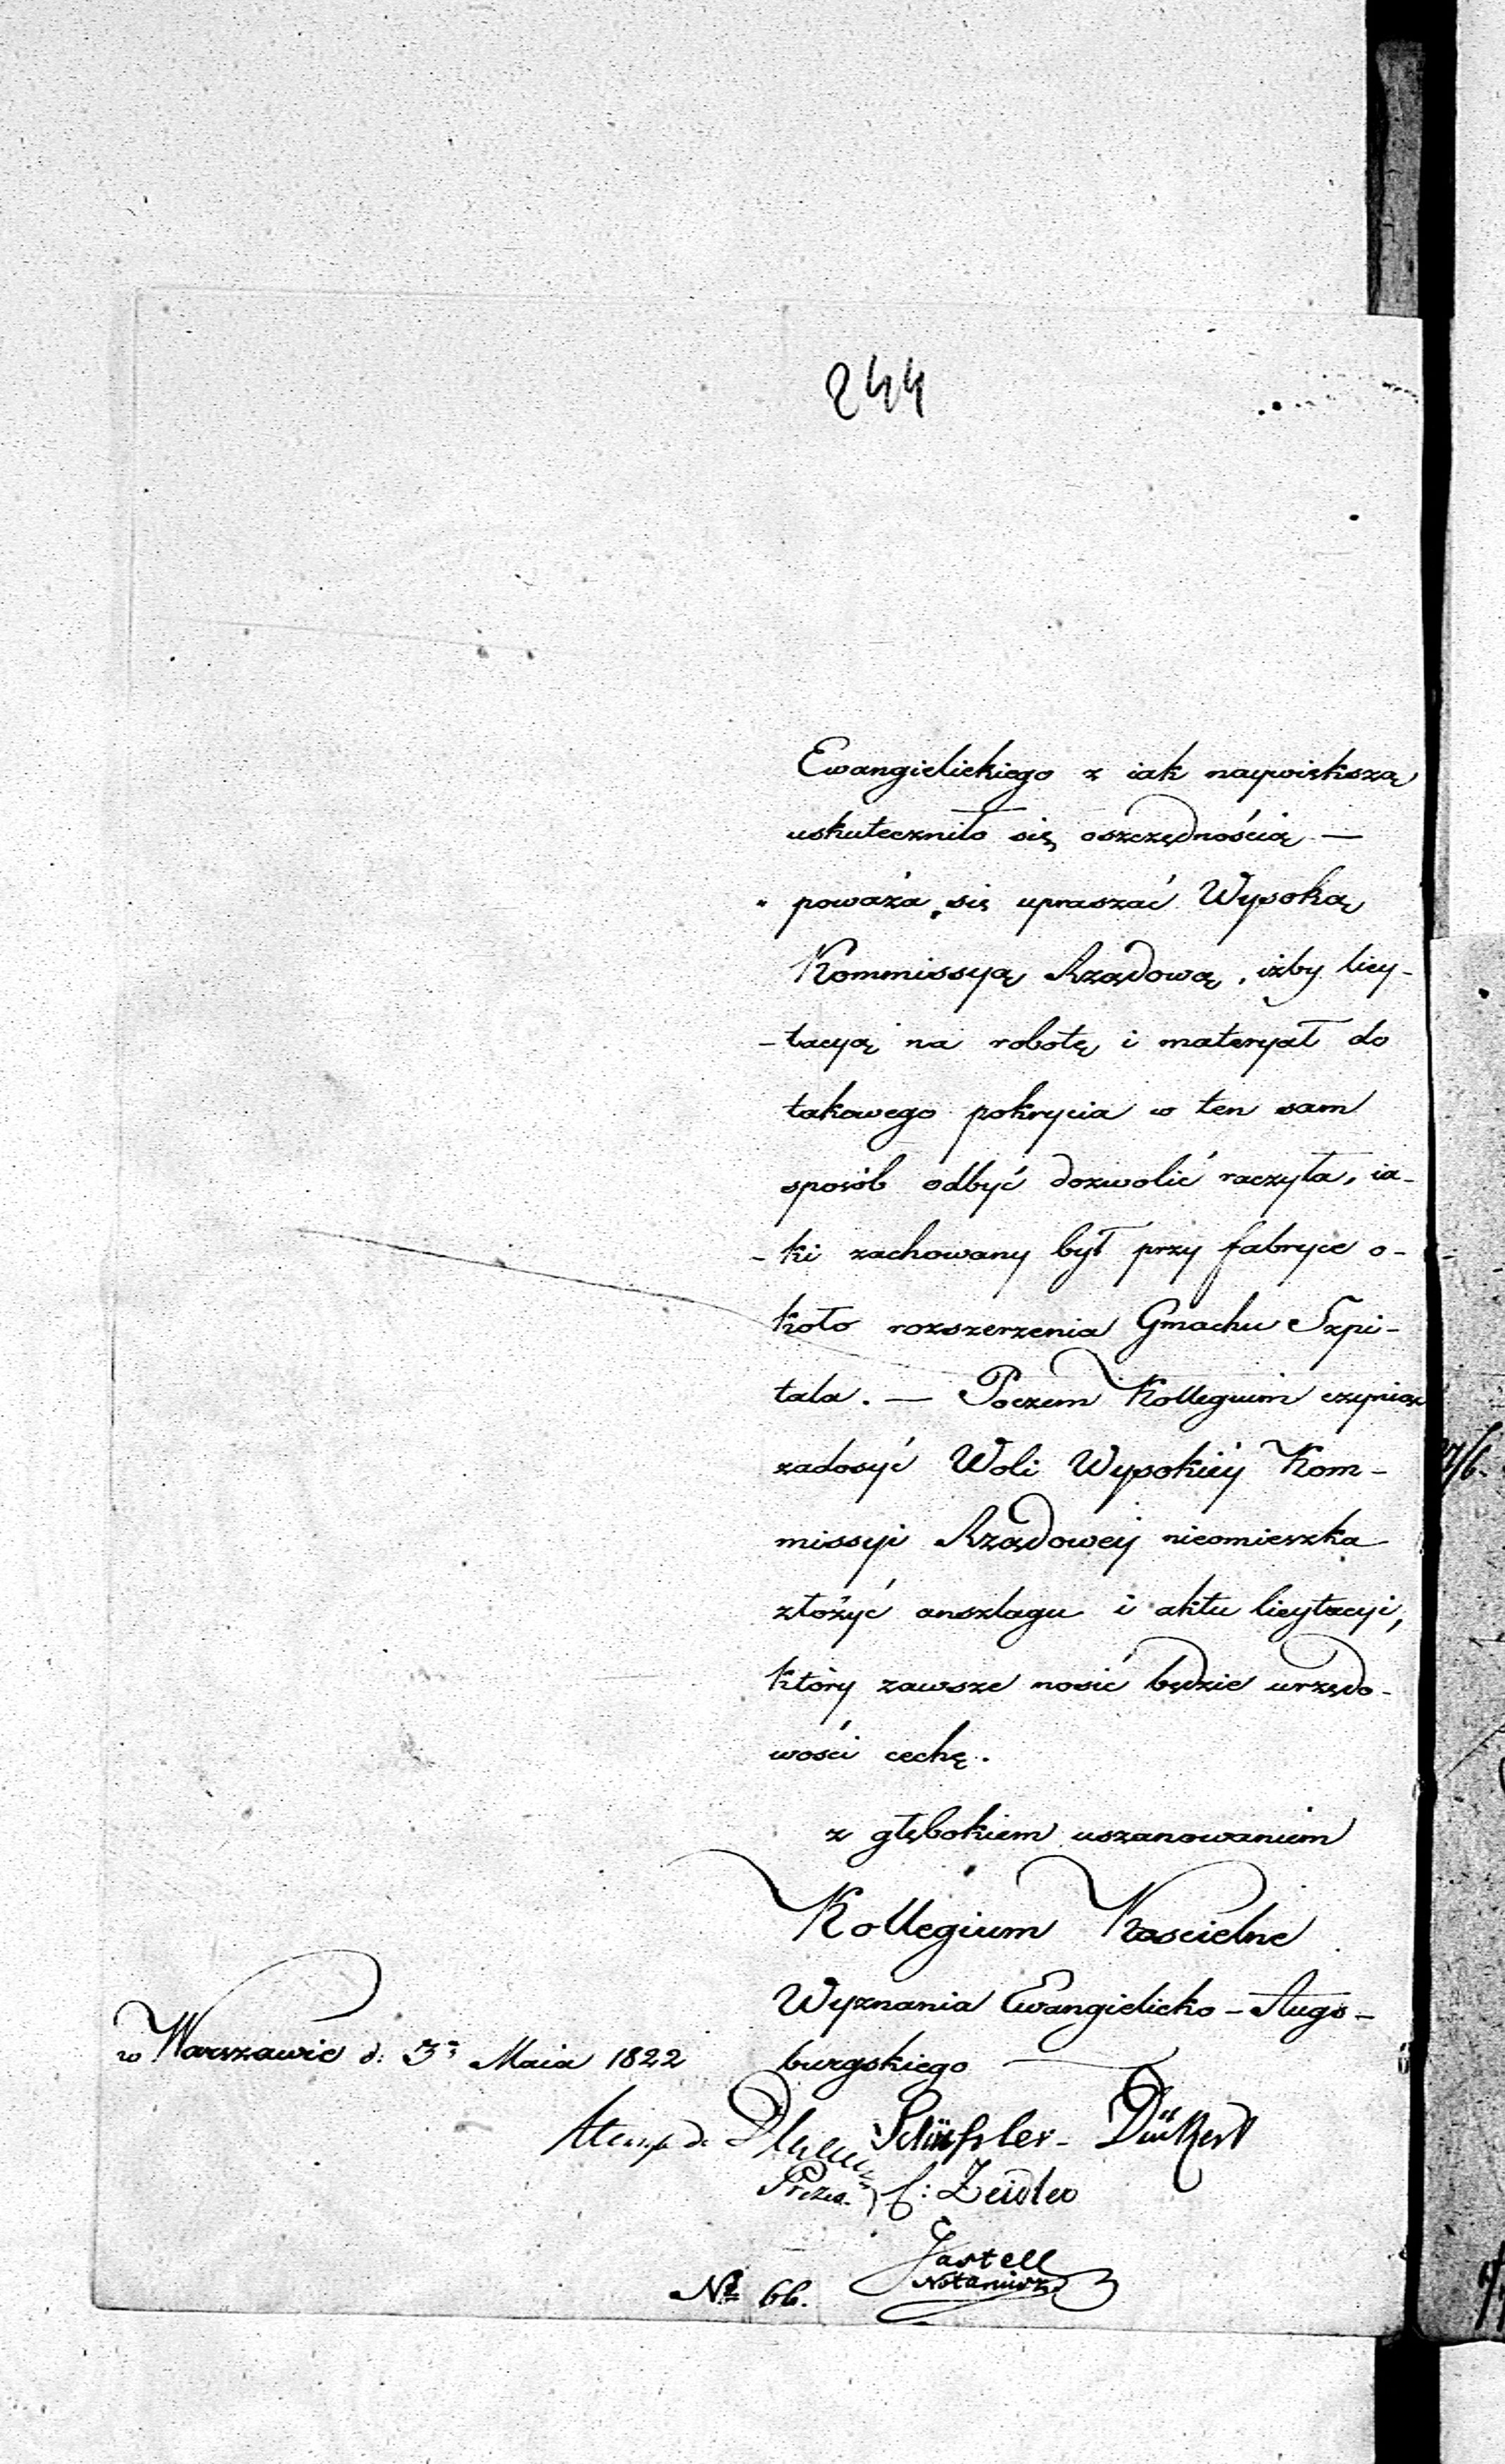 244
Ewangielickiego z iak naywiększą
uskuteczniło się oszczędnością —
poważa się upraszać Wysoką
Kommissyą Rządową, iżby licy-
-tacyą na robotę i materyał do
takowego pokrycia w ten sam
sposób odbyć dozwolić raczyła, ia-
-ki zachowany był przy fabryce o-
koło rozszerzenia Gmachu Szpi-
tala. — Poczem Kollegium czyniąc
zadosyć Woli Wysokiéy Kom-
missyi Rządowey nieomieszka
złożyć anszlagu i aktu licytacyi,
który zawsze nosić będzie urzędo-
wości cechę.
z głębokiem uszanowaniem
Kollegium Kościelne
Wyznania Ewangielicko-Augs-
burgskiego
w Warszawie d: 3 Maia 1822
Schüssler - Dückert
Prezes. f: Zeidler
Jastell
Notariusz
No 66.